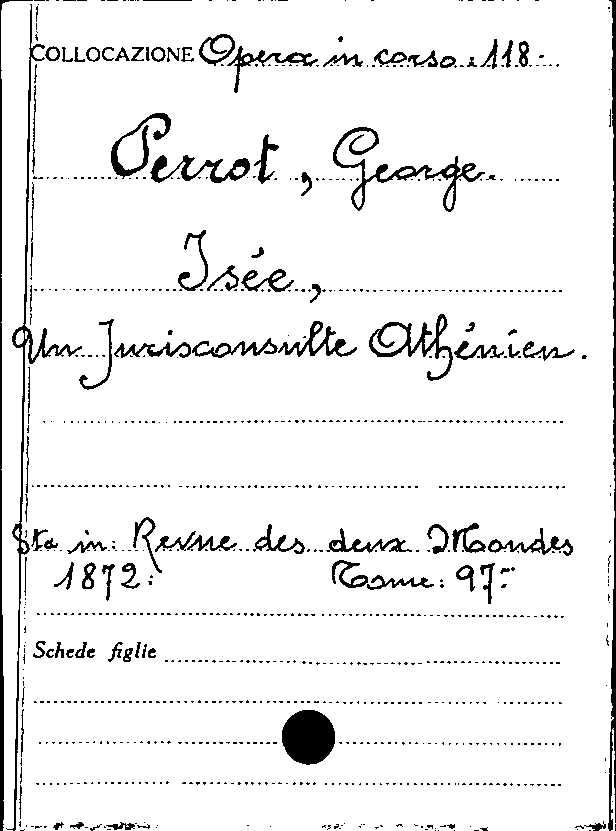 COLLOCAZIONE Opera in corso: 118.
Perrot, George.
Isée,
Un Jurisconsulte Athénien.
Sta in: Revue des deux Mondes
1872: Tome: 97.-
Schede figlie